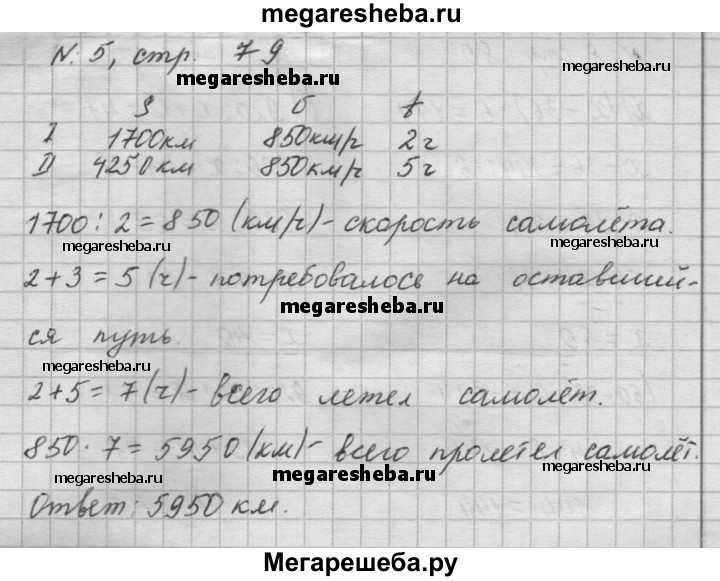 megaresheba.ru
N: 5, стр. 79
megaresheba.ru
megaresheba.ru
S б t
I 1700км 850км/ч 2 ч
II 4250км 850км/ч 5 ч
1700 : 2 = 850 (км/ч) - скорость самолёта.
megaresheba.ru megaresheba.ru
2 + 3 = 5 (ч) - потребовалось на оставший-
megaresheba.ru
ся путь.
megaresheba.ru
2 + 5 = 7 (ч) - всего летел самолёт.
megaresheba.ru
850 · 7 = 5950 (км) - всего пролетел самолёт.
megaresheba.ru megaresheba.ru megaresheba.ru
Ответ: 5950 км.
Мегарешеба.ру